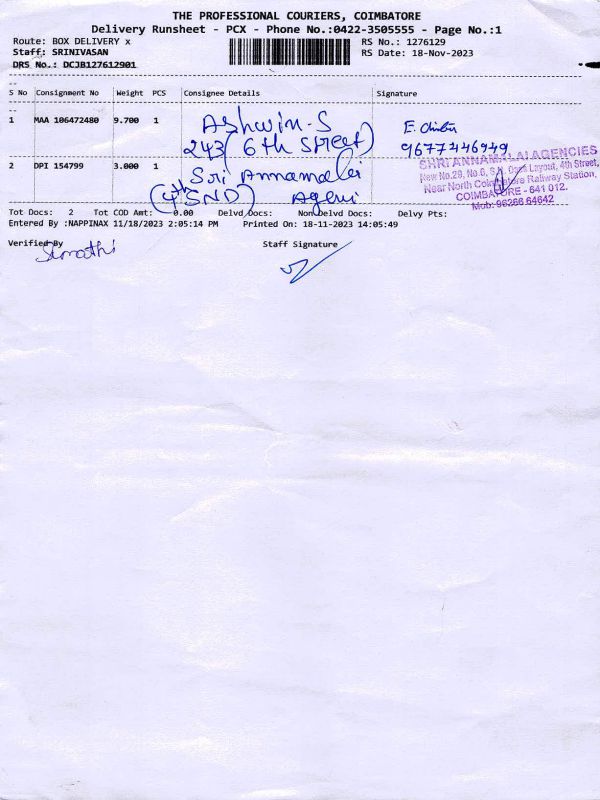 THE PROFESSIONAL COURIERS, COIMBATORE
Delivery Runsheet - PCX - Phone No.:0422-3505555 - Page No.:1
Route: BOX DELIVERY x
RS No.: 1276129
Staff: SRINIVASAN
RS Date: 18-Nov-2023
DRS No.: DCJB127612901
S No Consignment No Weight PCS Consignee Details Signature
1 MAA 106472480 9.700 1 Ashwin-S
243 (6th Street)
9677446949
2 DPI 154799 3.000 1 Sri Annamalai
(4th SND)
SHRI ANNAMALAI AGENCIES
New No.29, No.6, Layout, 4th Street,
Near North Coimbatore Railway Station,
COIMBATORE - 641 012.
Mob: 96266 64642
Tot Docs: 2 Tot COD Amt: 0.00 Delvd Docs: Non Delvd Docs: Delvy Pts:
Entered By :NAPPINAX 11/18/2023 2:05:14 PM Printed On: 18-11-2023 14:05:49
Verified By Staff Signature